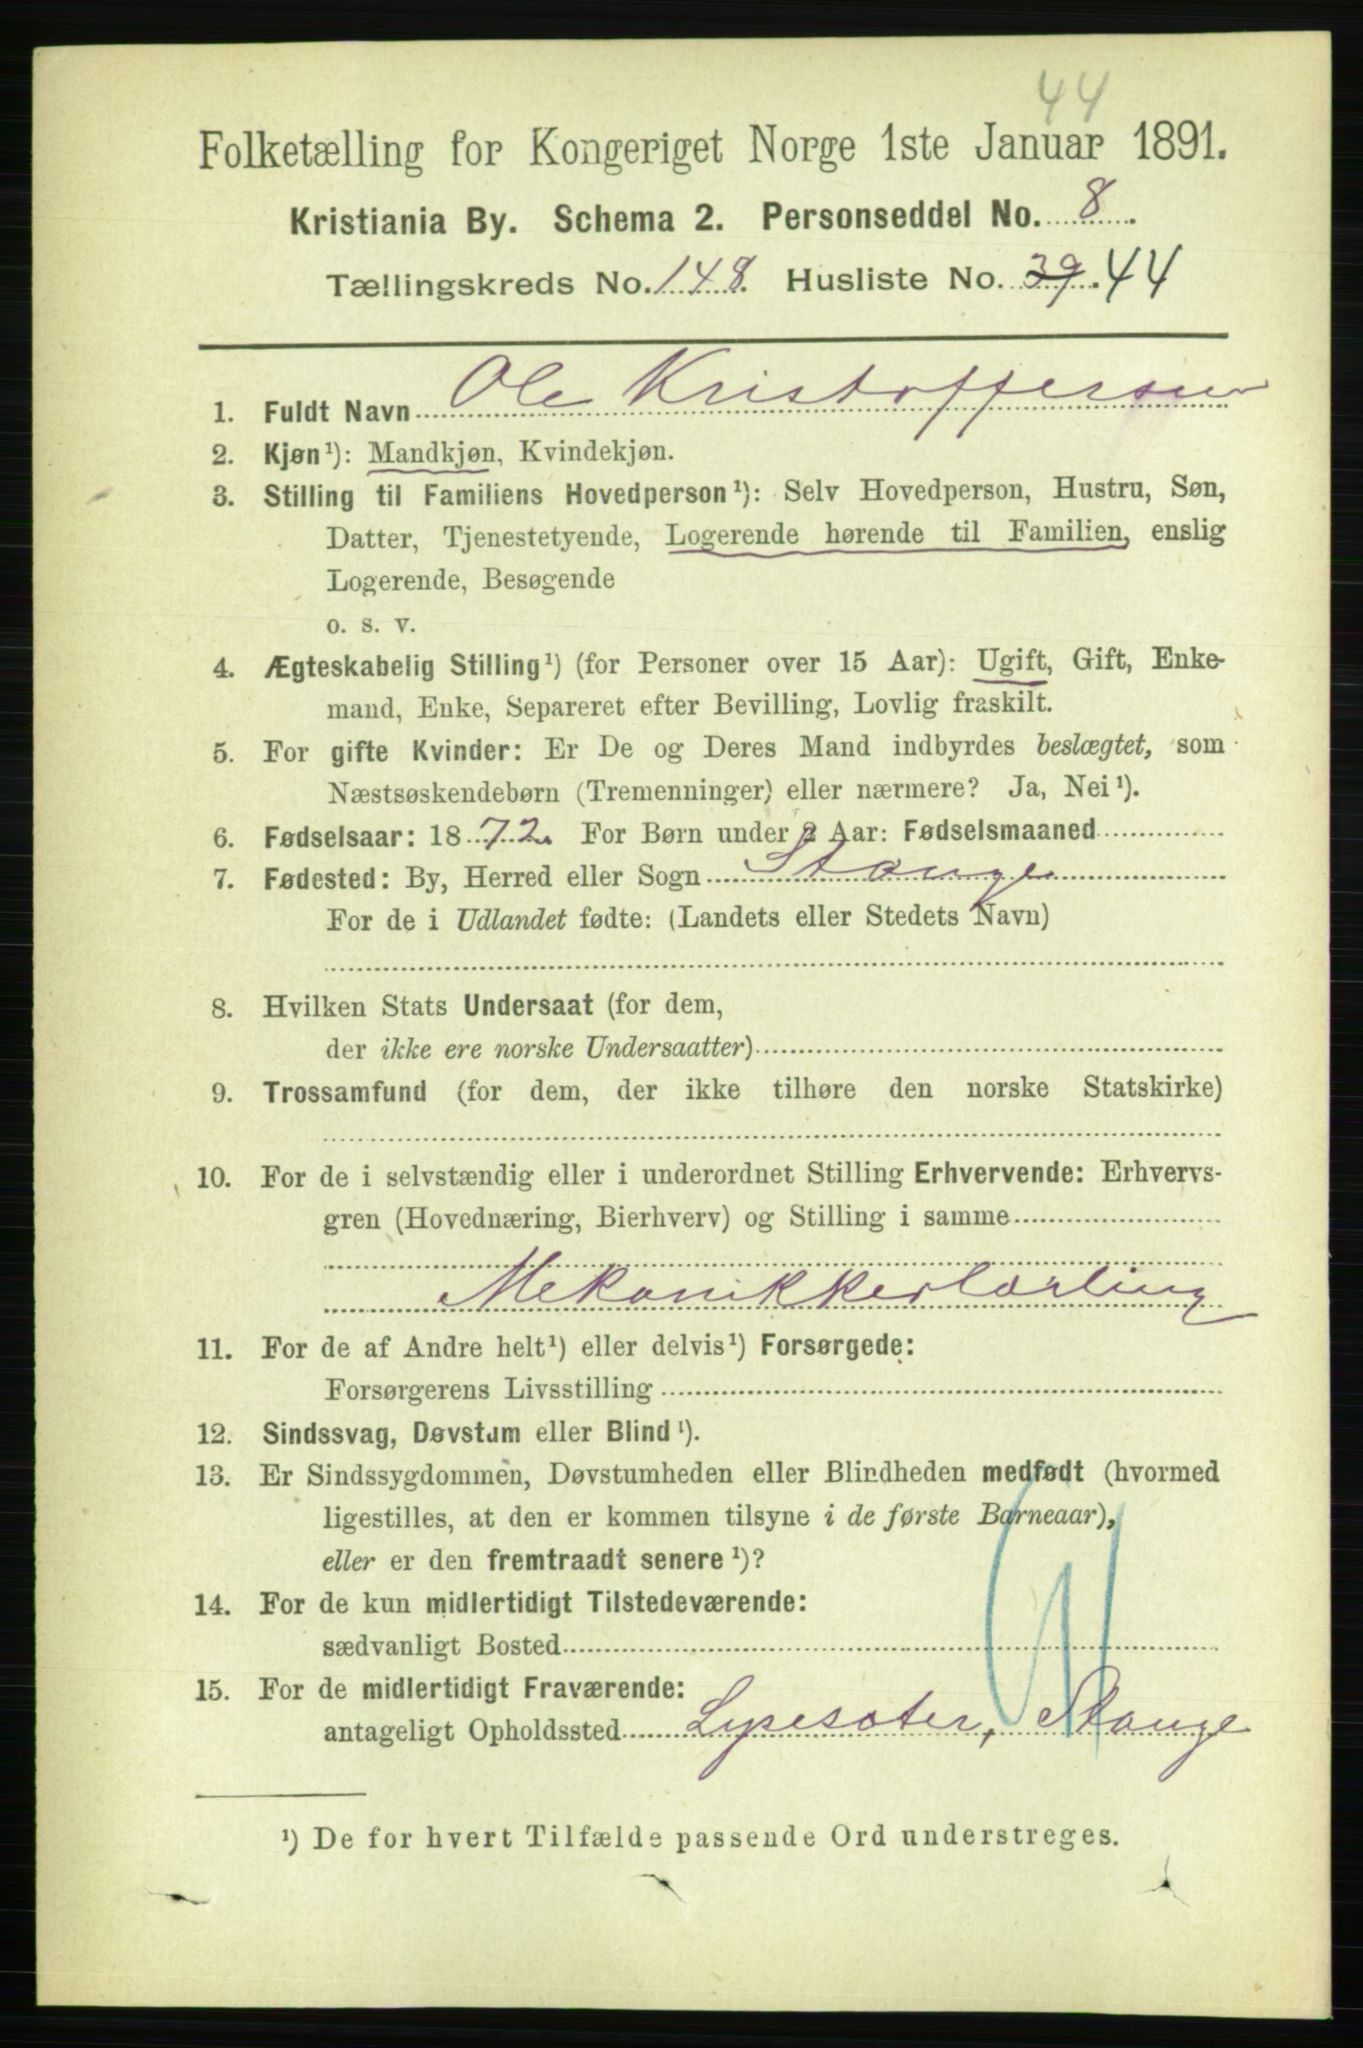 44
Folketælling for Kongeriget Norge 1ste Januar 1891.
Kristiania By. Schema 2. Personseddel No. 8
Tællingskreds No. 148 Husliste No. 39. 44
1. Fuldt Navn Ole Kristoffersen
2. Kjøn¹): Mandkjøn, Kvindekjøn.
3. Stilling til Familiens Hovedperson¹): Selv Hovedperson, Hustru, Søn,
Datter, Tjenestetyende, Logerende hørende til Familien, enslig
Logerende, Besøgende
o. s. v.
4. Ægteskabelig Stilling¹) (for Personer over 15 Aar): Ugift, Gift, Enke-
mand, Enke, Separeret efter Bevilling, Lovlig fraskilt.
5. For gifte Kvinder: Er De og Deres Mand indbyrdes beslægtet, som
Næstsøskendebørn (Tremenninger) eller nærmere? Ja, Nei¹).
6. Fødselsaar: 1872. For Børn under 2 Aar: Fødselsmaaned
7. Fødested: By, Herred eller Sogn Stange
For de i Udlandet fødte: (Landets eller Stedets Navn)
8. Hvilken Stats Undersaat (for dem,
der ikke ere norske Undersaatter)
9. Trossamfund (for dem, der ikke tilhøre den norske Statskirke)
10. For de i selvstændig eller i underordnet Stilling Erhvervende: Erhvervs-
gren (Hovednæring, Bierhverv) og Stilling i samme
Mekanikkerlærling
11. For de af Andre helt¹) eller delvis¹) Forsørgede:
Forsørgerens Livsstilling
12. Sindssvag, Døvstum eller Blind¹).
13. Er Sindssygdommen, Døvstumheden eller Blindheden medfødt (hvormed
ligestilles, at den er kommen tilsyne i de første Barneaar),
eller er den fremtraadt senere¹)?
14. For de kun midlertidigt Tilstedeværende:
sædvanligt Bosted
15. For de midlertidigt Fraværende:
antageligt Opholdssted Lysesæter, Stange
¹) De for hvert Tilfælde passende Ord understreges.